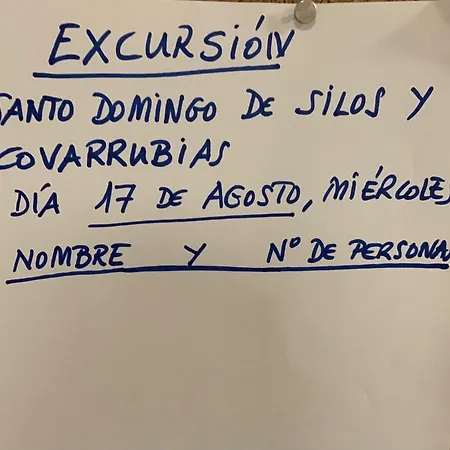 EXCURSIÓN
SANTO DOMINGO DE SILOS Y
COVARRUBIAS
DÍA 17 DE AGOSTO, MIÉRCOLES
NOMBRE Y Nº DE PERSONA